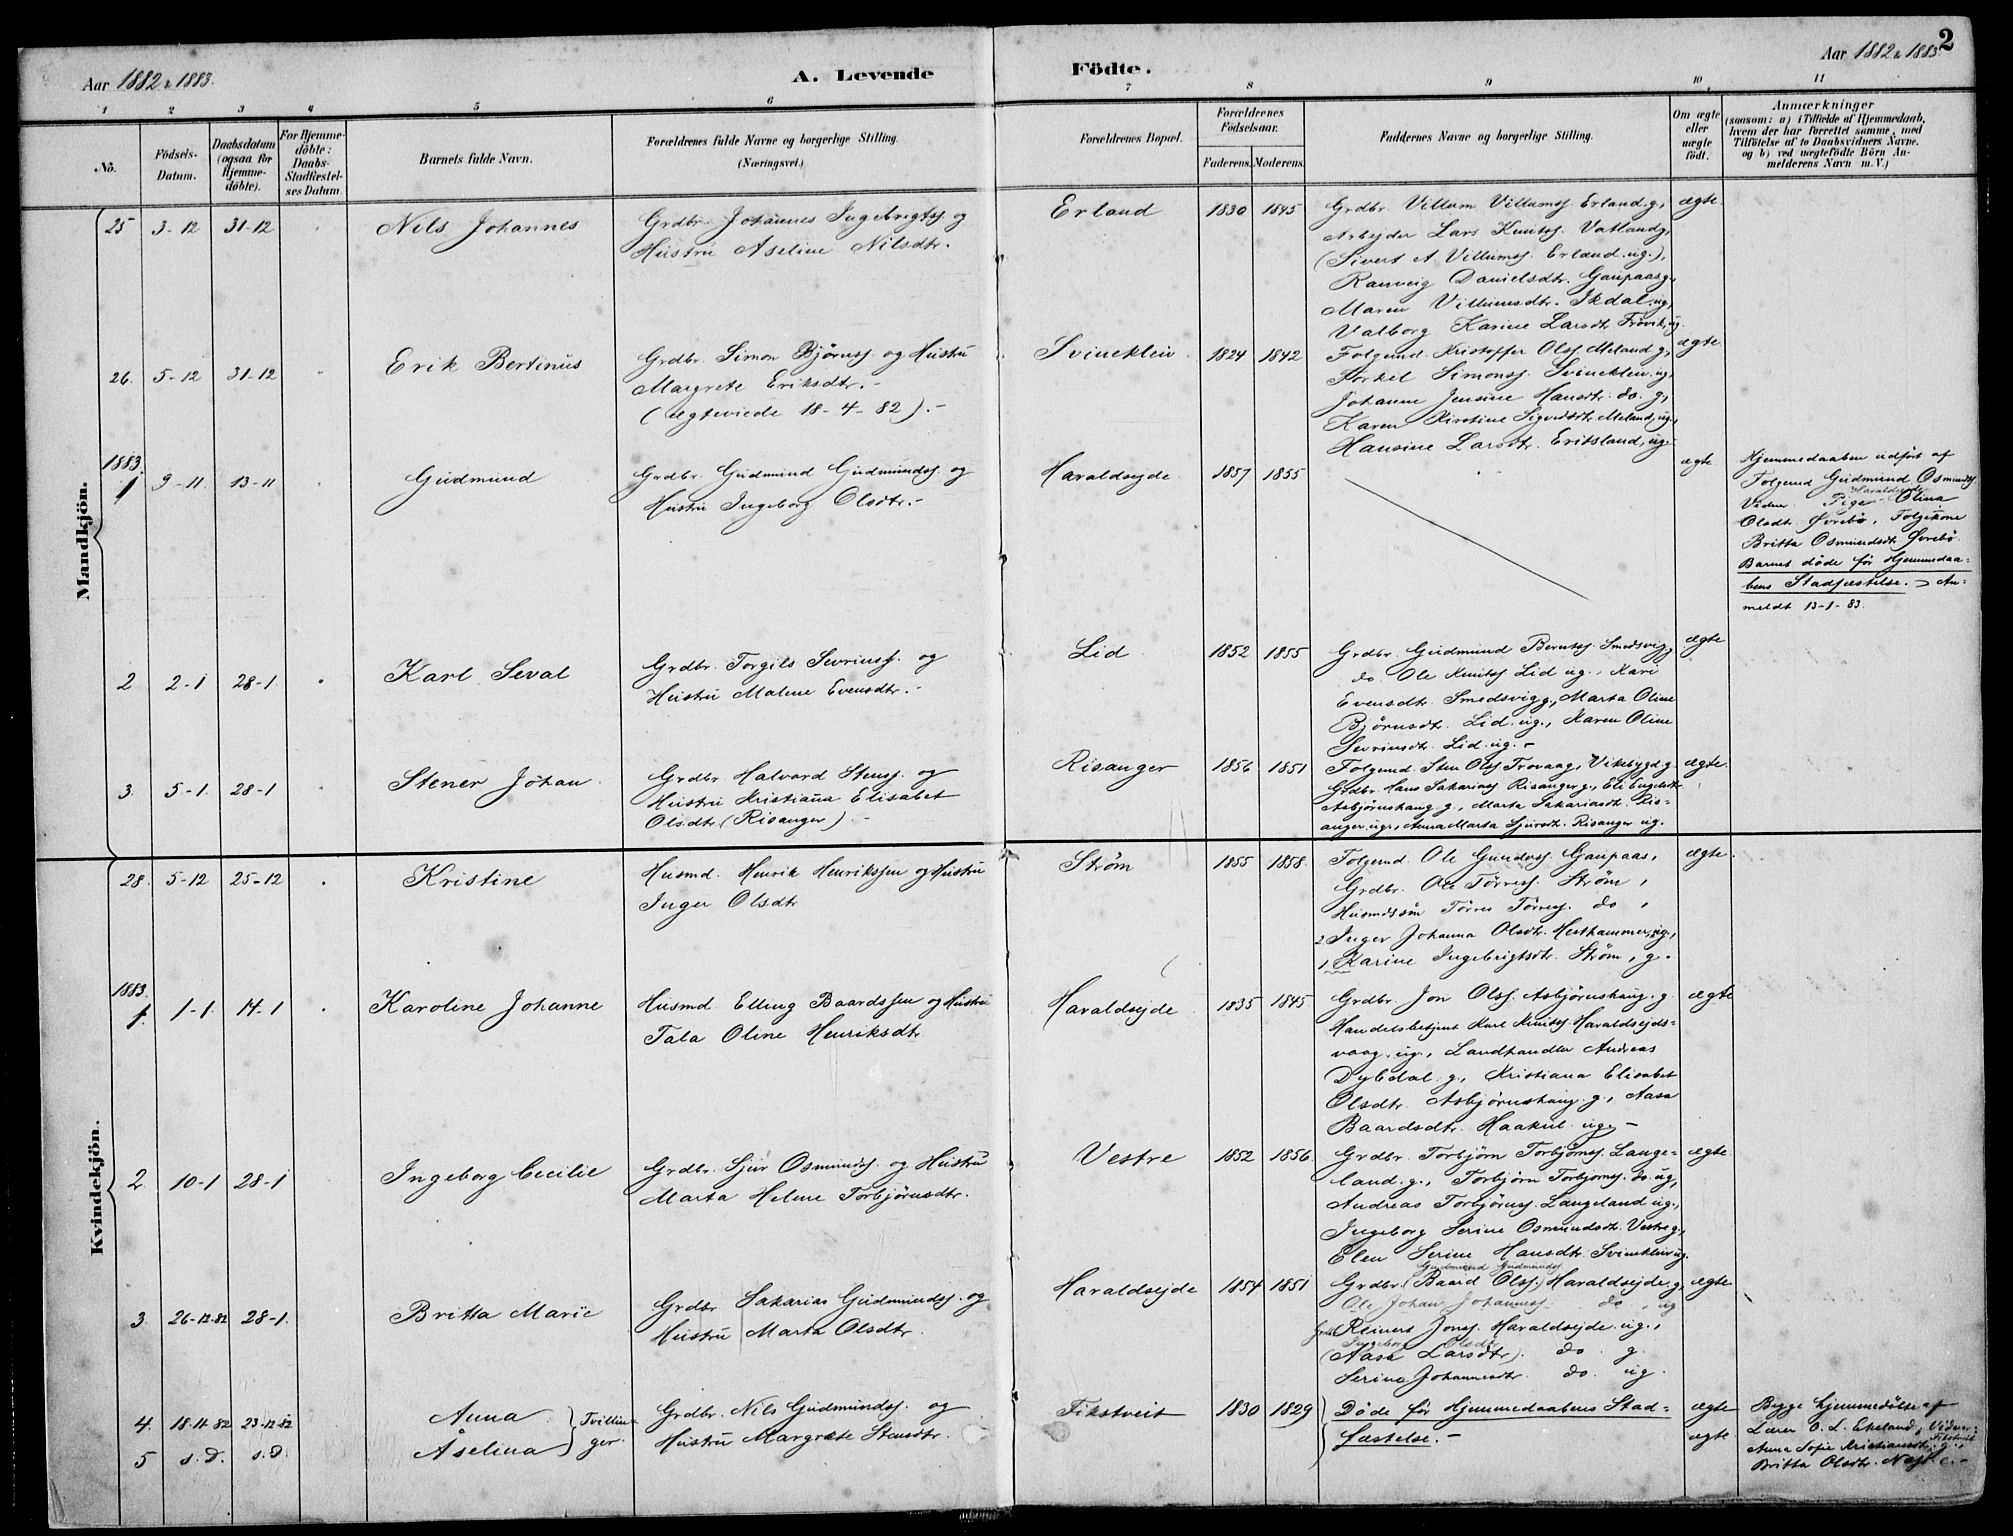 2
Aar 1882 & 1883.
A. Levende
Födte.
Aar 1882 & 1883
1 2 3 4 5 6 7 8 9 10 11
No.
Födsels-Datum.
Daabsdatum (ogsaa for Hjemme-döbte).
For Hjemme-döbte: Daabs-Stadfæstel-ses Datum
Barnets fulde Navn.
Forældrenes fulde Navne og borgerlige Stilling.
(Næringsvei.)
Forældrenes Bopæl.
Forældrenes Födselsaar.
Faderens. Moderens.
Faddernes Navne og borgerlige Stilling.
Om ægte eller uægte födt.
Anmærkninger
(saasom: a) i Tilfælde af Hjemmedaab,
hvem der har forrettet samme, med
Tilföielse af to Daabsvidners Navne,
og b) ved uægtefödte Börn An-
melderens Navn m. V.)
Mandkjön.
25 3-12 31-12 Nils Johannes
Grdbr. Johannes Ingebrigtss. og
Hustru Aseline Nilsdtr.
Erland 1830 1845
Grdbr. Villum Villumss. Erland g.,
Arbejder Lars Knutss. Vatland g.,
(Sivert A Villumss. Erland ug.),
Ranveig Danielsdtr. Gaupaas g.,
Maren Villumsdtr. Ikdal ug.,
Valborg Karine Larsdtr. Frövik ug.
ægte.
26. 5-12 31-12 Erik Bertinus
Grdbr. Simon Bjørnss. og Hustru
Margrete Eriksdtr. -
(ægteviede 18-4-82). -
Svinekleiv 1824 1842
Folgemd. Kristoffer Olss. Meland g.,
Torkel Simonss. Svinekleiv ug.,
Johanne Jensine Hansdtr. do. g.,
Karen Kirstine Sigvedsdtr. Meland, ug.,
Hansine Larsdtr. Eritsland, ug.
ægte
1883.
1 9-11. 13-11 Gudmund
Grdbr. Gudmund Gudmundss. og
Hustru Ingeborg Olsdtr. -
Haraldsejde 1857 1855
ægte
Hjemmedaaben udført af
Folgemd Gudmund Osmundss.
Haraldsejde
Vidner Pige Olina
Olsdt. Øvrebö, Folgekone
Britta Osmundsdt. Øvrebö.
Barnet döde för Hjemmedaa-
bens Stadfæstelse. - An-
meldt 13-1-83.
2 2-1 28-1. Karl Seval
Grdbr. Torgils Sevrinss. og
Hustru Malene Evensdtr. -
Lid 1852 1855
Grdbr. Gudmund Berntss. Smedsvig g.,
do. Ole Knutss. Lid ug., Kari
Evensdtr. Smedsvig g., Marta Oline
Bjørnsdt. Lid. ug., Karen Oline
Sevrinsdt. Lid. ug. -
ægte
3. 5-1. 28-1 Stener Johan
Grdbr. Halvard Stenss. og
Hustru Kristiana Elisabet
Olsdtr. (Risanger). -
Risanger 1856 1851
Folgemd. Sten Olss. Trovaag, Vikebygd g.
Grdbr. Hans Sakariass. Risanger g., Eli Engelsdtr.
Asbjørnshaug g., Marta Sakariasdt. Ris-
anger ug., Anna Marta Sjursdt. Risanger ug.
ægte.
Kvindekjön.
28. 5-12 25-12 Kristine
Husmd. Henrik Henrikssen og Hustru
Inger Olsdtr
Strøm 1855 1858.
Folgemd. Ole Gunderss. Gaupaas,
Grdbr. Ole Törress. Strøm,
Husmdssøn Törres Törress. do,
2 Inger Johanna Olsdtr. Hesthammer, ug.,
1 Karine Ingebrigtsdtr. Strøm, g.
ægte.
1883.
1. 1-1. 14-1 Karoline Johanne
Husmd. Elling Baardssen og Hustru
Tala Oline Henriksdtr
Haraldsejde 1835 1845
Grdbr. Jon Olss. Asbjørnshaug. g.
Handelsbetjent Karl Knutss. Haraldsejds-
vaag. ug., Landhandler Andreas
Dybdal. g., Kristiana Elisabet
Olsdtr. Asbjørnshaug g., Aasa
Baardsdtr. Haakul. ug. -
ægte
2. 10-1 28-1 Ingeborg Cecilie
Grdbr. Sjur Osmundss. og Hustru
Marta Helene Torbjørnsdtr.
Vestre 1852 1856.
Grdbr. Torbjørn Torbjørnss. Lange-
land. g., Torbjørn Torbjørnss. do. ug.,
Andreas Torbjørnss. Langeland ug.,
Ingeborg Serine Osmundsdt. Vestre g.,
Elen Serine Hansdtr. Svinekleiv ug.
ægte
3. 26-12-82 28-1. Britta Marie
Grdbr. Sakarias Gudmundss. og
Hustru Marta Olsdtr.
Haraldsejde 1854 1851
Gudmund Gudmundss.
Grdbr. (Baard Olss.) Haraldsejde. g.
Ole Johan Johanness. do, ug
Reinert Jonss. Haraldsejde. ug.,
Ingeborg Olsdtr.
(Aasa Larsdtr). do. g.
Serina Johannesdtr. do. ug.
ægte
4. 18-11-82 23-12-82 Anna
5 s.D. s.D. Åselina
Tvillin-
ger.
Grdbr. Nils Gudmundss. og
Hustru Margrete Stensdtr.
Fikstveit 1830 1829
Döde før Hjemmedaabens Stad-
fæstelse. -
ægte
ægte
Begge hjemmedöbte af
Lærer O. L. Ekeland; Vidner:
Anna Sofie Kristiansdtr. Fikstveit g.,
Britta Olsdtr.